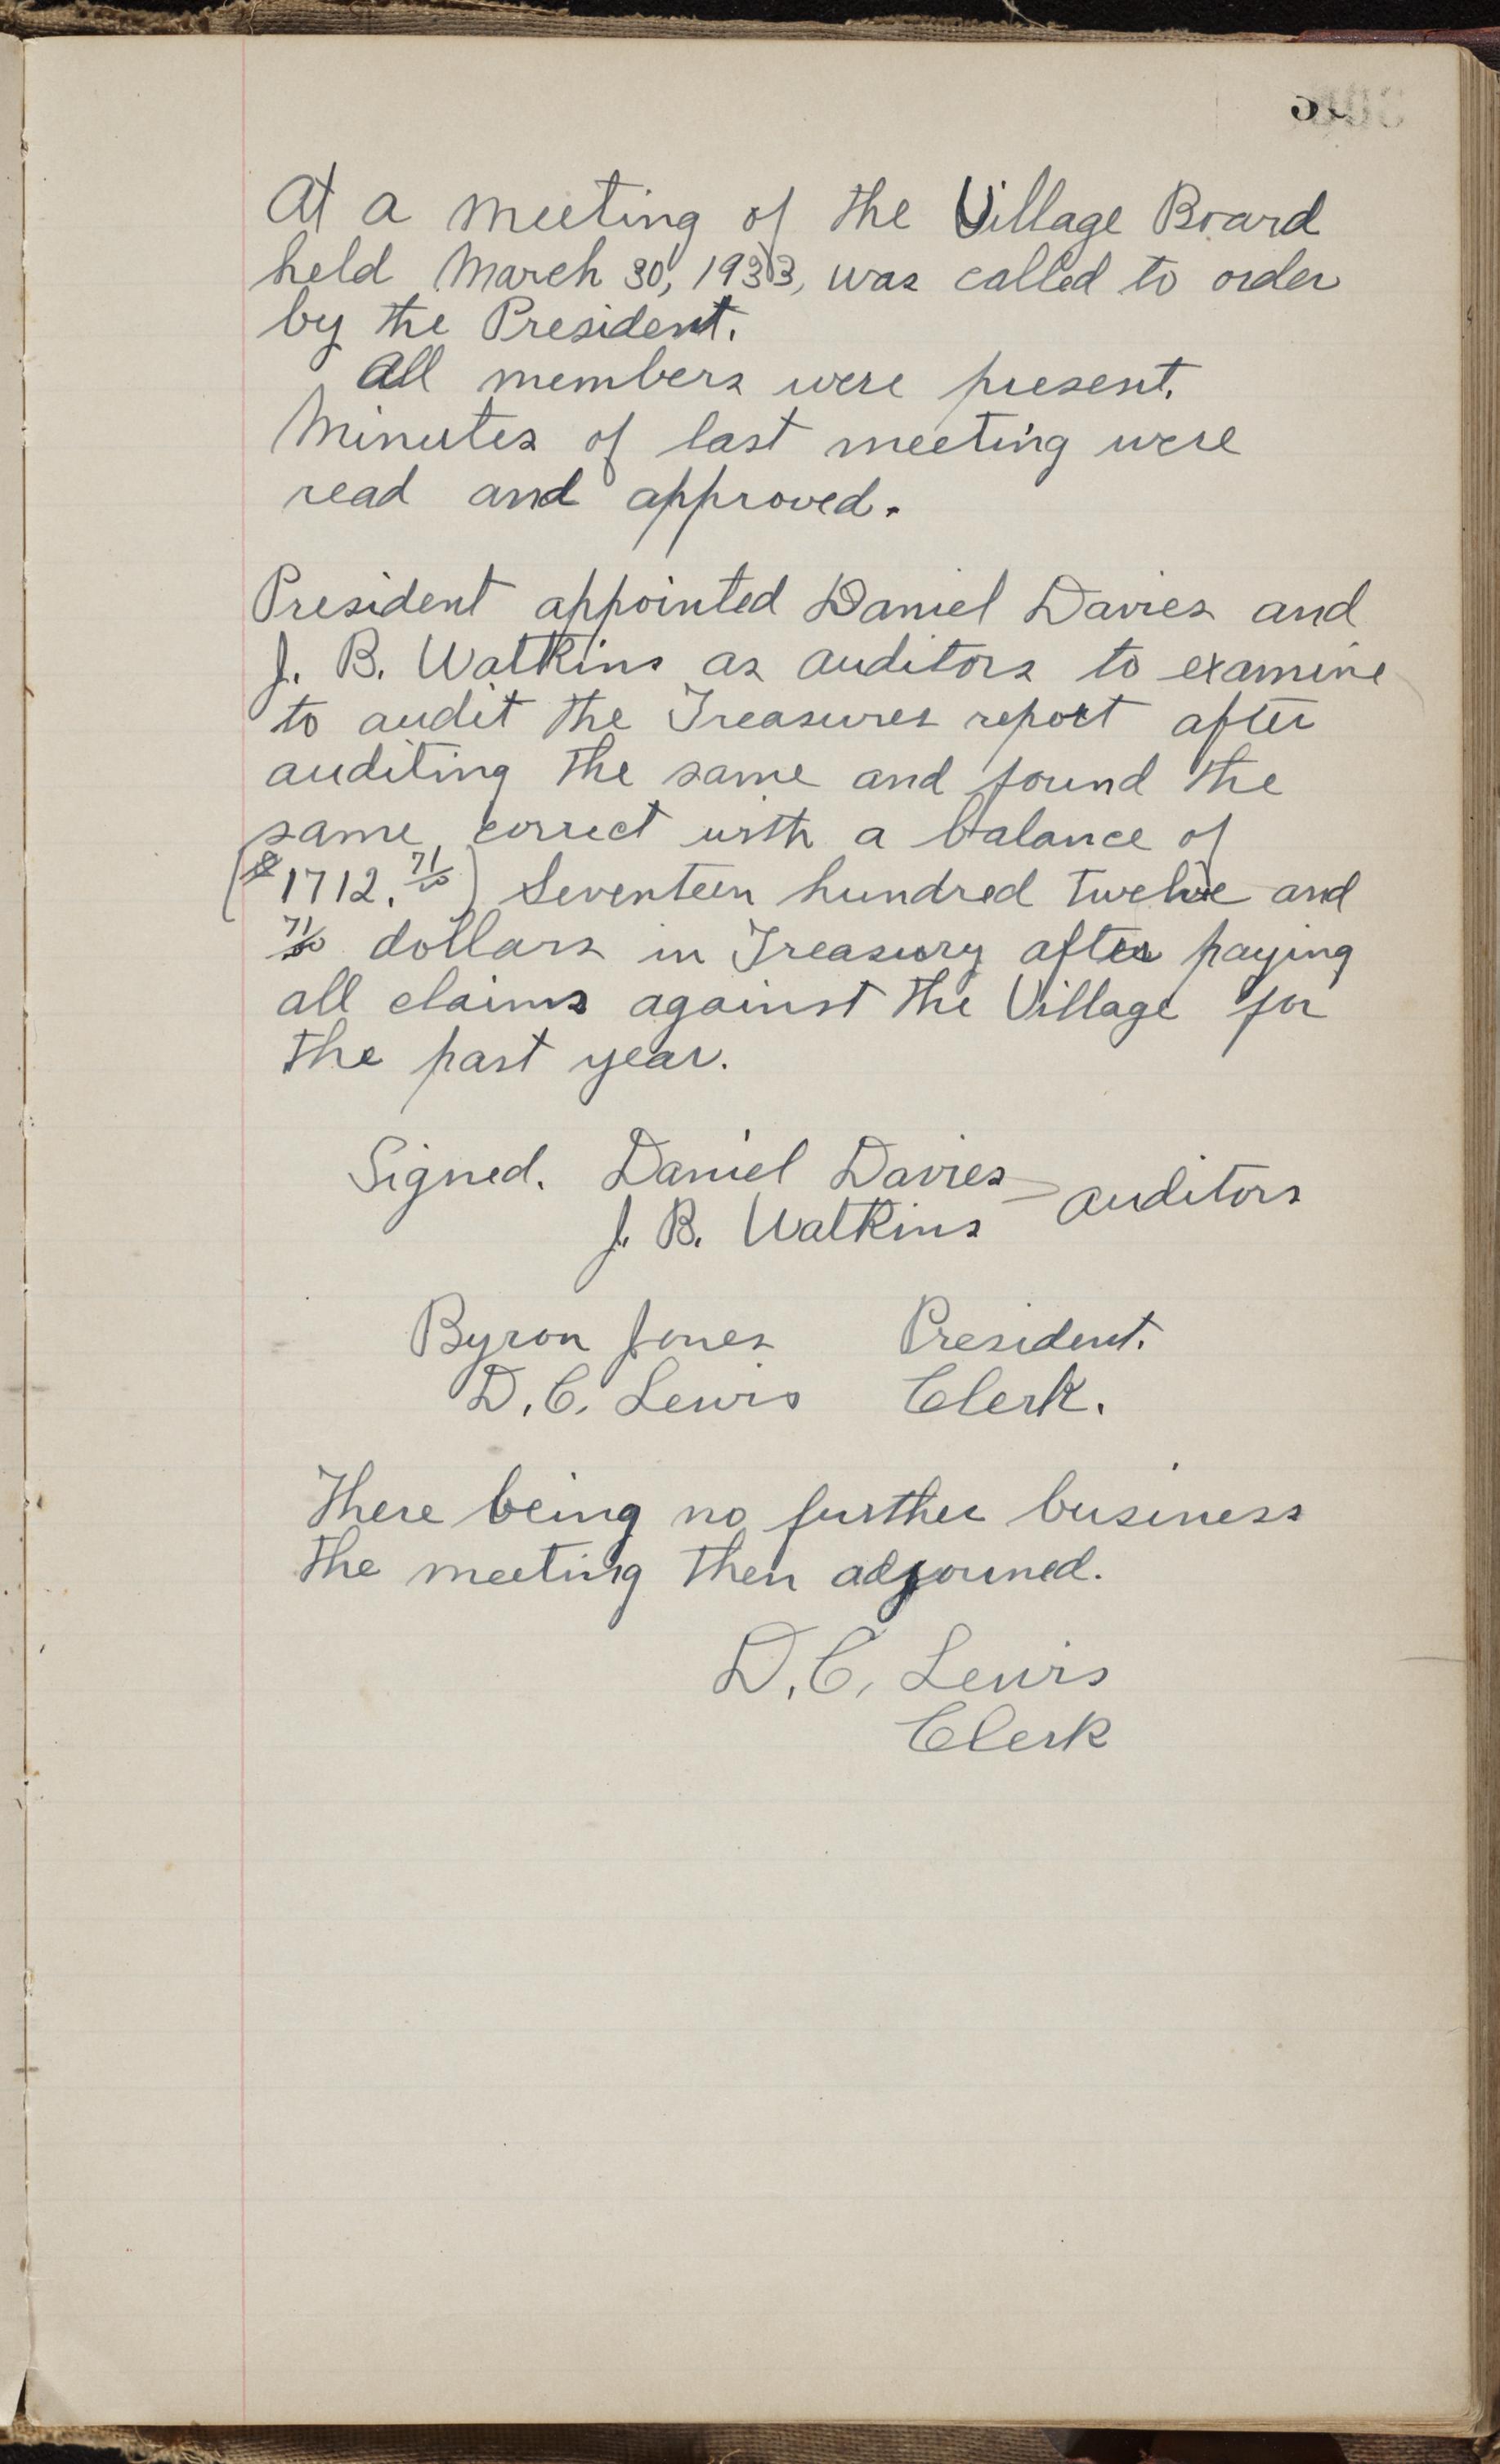 At a meeting of the Village Board
held March 30, 1933, was called to order
by the President.
All members were present.
Minutes of last meeting were
read and approved.
President appointed Daniel Davies and
J. B. Watkins as auditors to examine
to audit the Treasures report after
auditing the same and found the
same correct with a balance of
($1712.71/00) Seventeen hundred twelve and
71/00 dollars in Treasury after paying
all claims against the Village for
the past year.
Signed. Daniel Davies
J. B. Watkins auditors
Byron Jones President.
D. C. Lewis Clerk.
There being no further business
the meeting then adjourned.
D. C. Lewis
Clerk